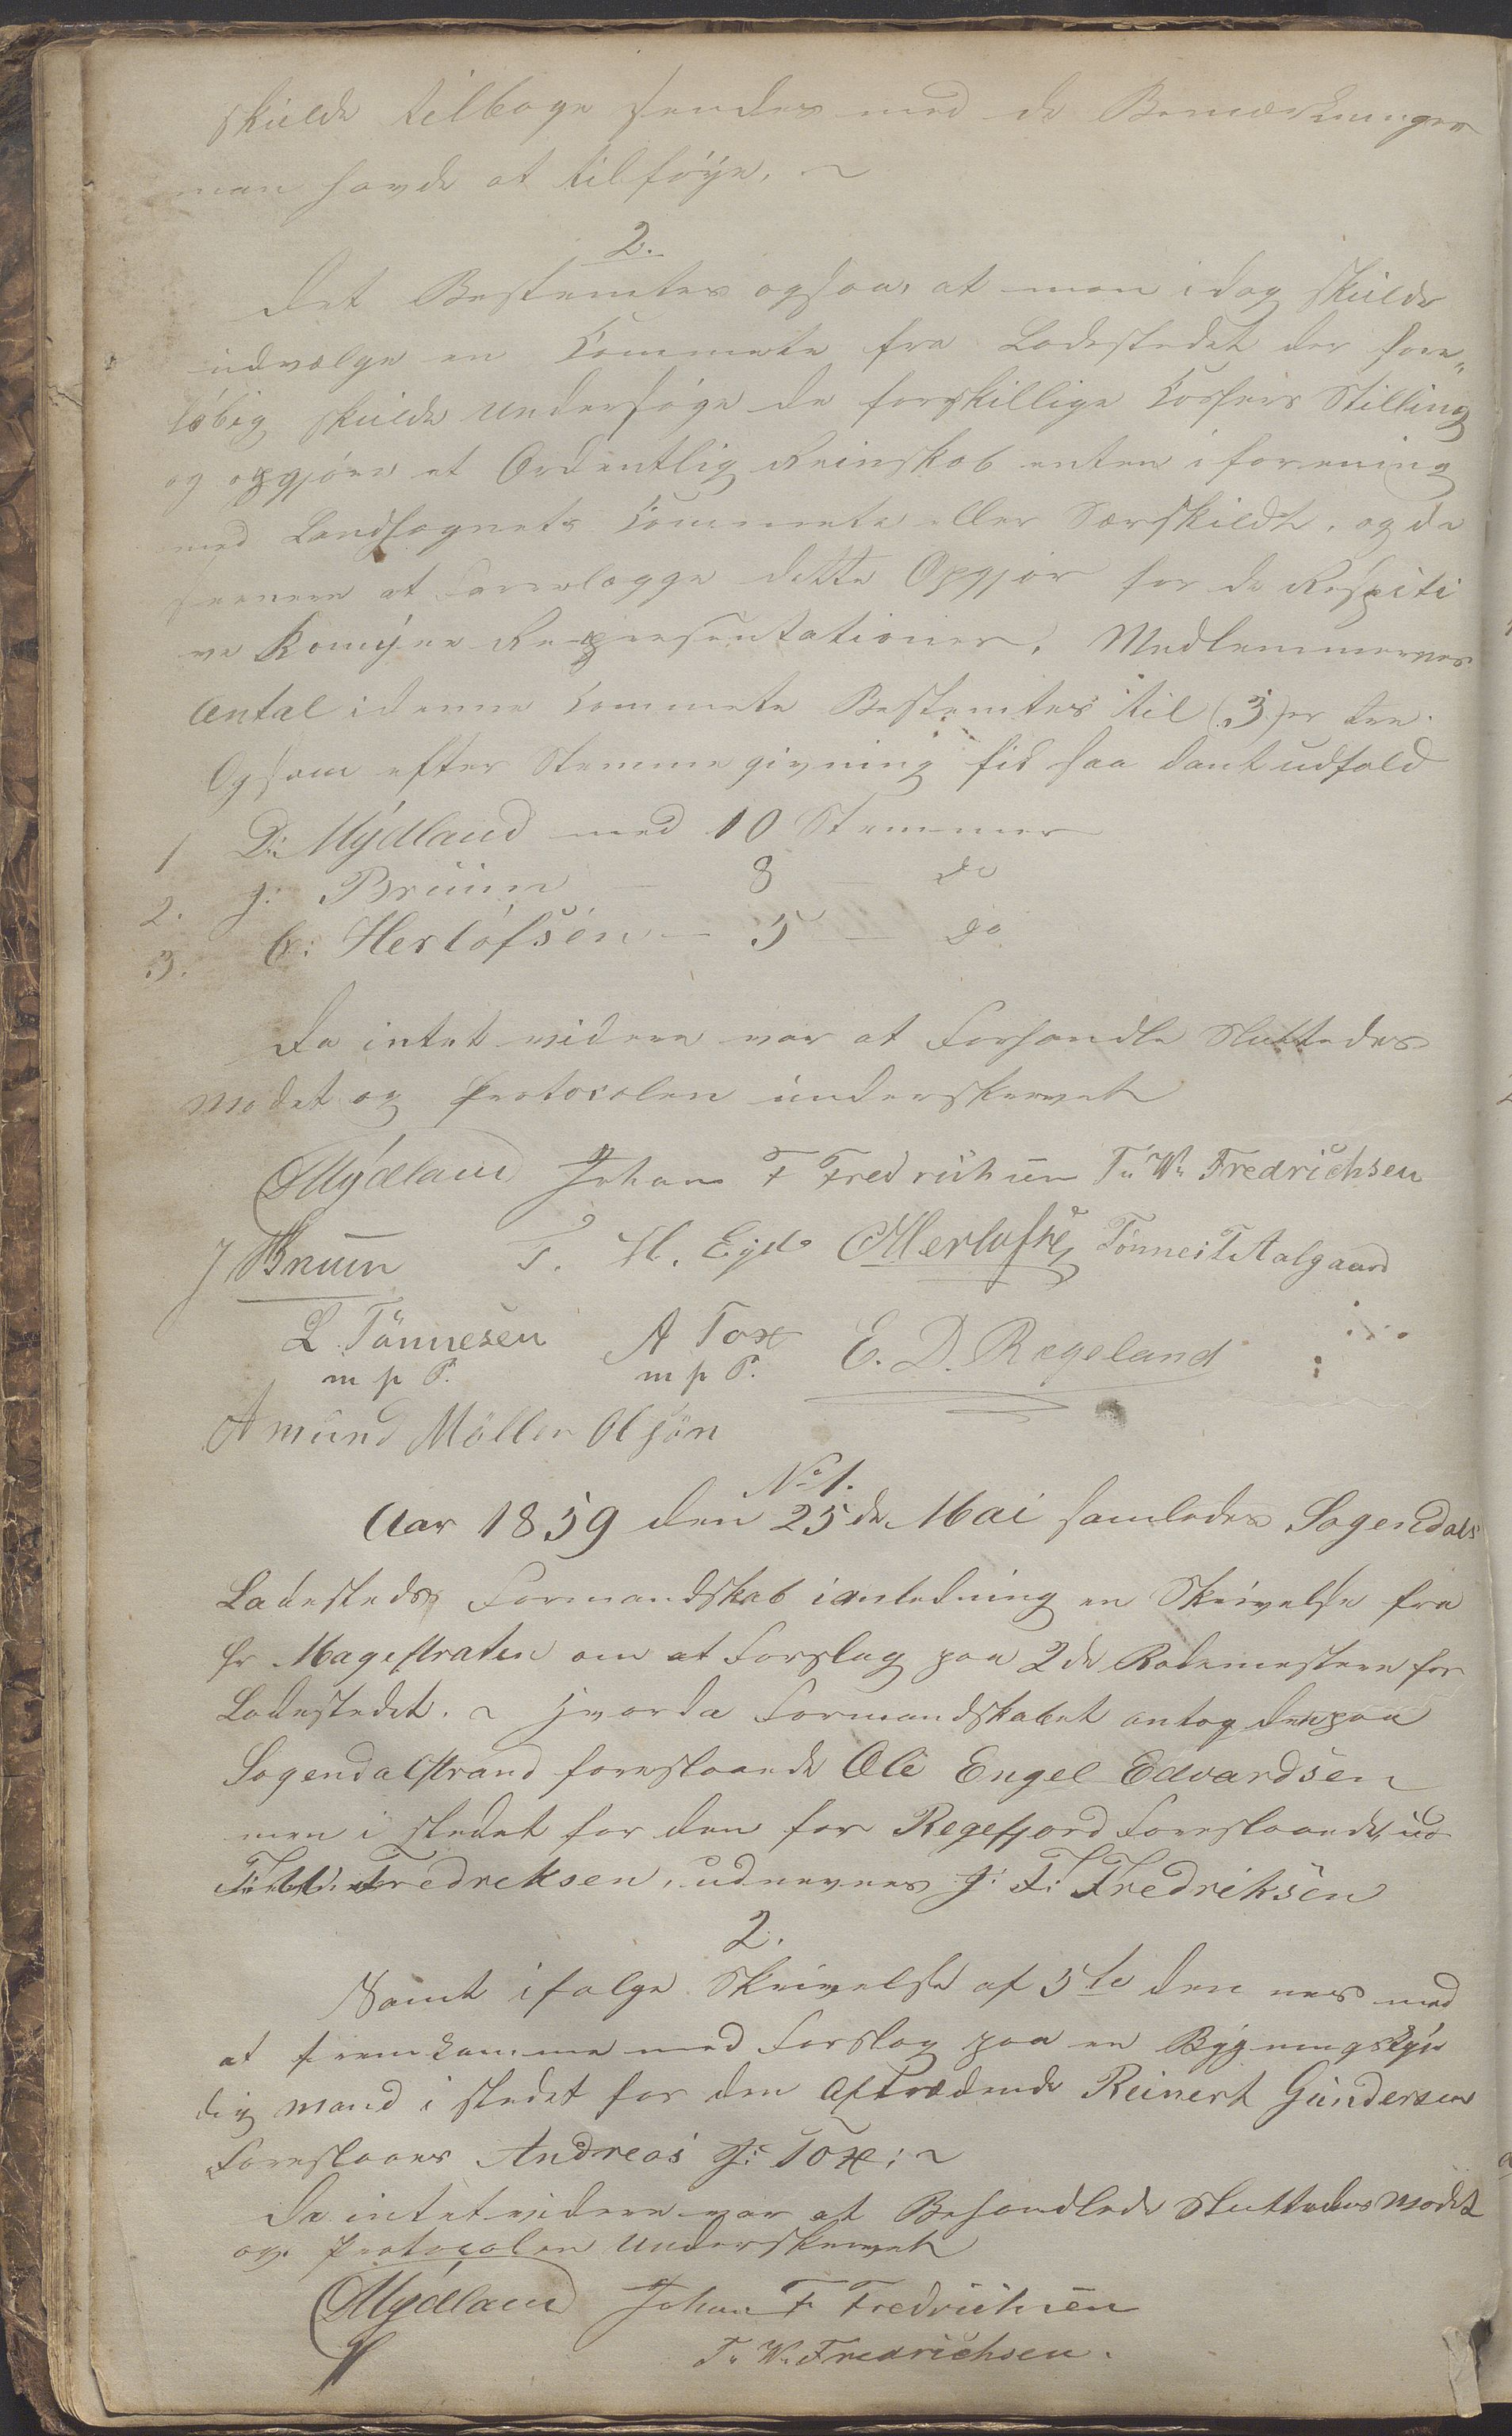 skulde tilbage sendes med de Bemærkninger
man havde at tilføye. ~
2.
Det Bestemtes ogsaa, at man idag skulde
udvælge en Commete fra Ladestedet der fore„
løbig skulde undersøge de forskillige Cassers Stilling
og opgjøre et Ordentlig Reinskab enten i forening
med Landsognets Commete eller Særskildt, og da
seenere at Forrelægge dette Opgjør for de Respiti
ve Komyne Representationer. Medlemmernes
Antal i denne Commete Bestemtes til (3) er tre.
Og som efter Stemme givning fik saa dant udfald
1 D: Mydland med 10 Stemmer
2. J: Bruun — 8 — do
3. C: Herlofsen — 5 — do
Da intet videre var at Forhandle Sluttedes
Mødet og Protocolen underskrevet
DMydland Johan F Fredrichsen T. W. Fredrichsen
J Bruun T. H. Eyde CHerlofsen Tønnes T Aalgaard
L Tönnesen A Tox E. D. Regeland
m p P. m p P.
Amund Möller Olsön
No 1.
Aar 1859 den 25de Mai samledes Sogendals
Ladesteds Formandskab i anledning en Skrivelse fra
hr Magestraten om at Forslag paa 2de Rodemestere for
Ladestedet. ~ hvorda Formandskabet antog den paa
Sogendalstrand foreslaaede Ole Engel Edvardsen
men i stedet for den for Regefjord Foreslaaede
Fredreksen, udnevnes J: F: Fredriksen
2.
Samt ifølge Skrivelse af 5te den nes med
at fremkomme med Forslag paa en Bygningskyn
dig mand i stedet for den Aftrædende Reinert Gundersen
Foreslaaes Andreas J: Tox: ~
Da intet videre var at Behandlede Sluttedes Mødet
og Protocolen Underskrevet
DMydland Johan F Fredrichsen
T. W. Fredrichsen.